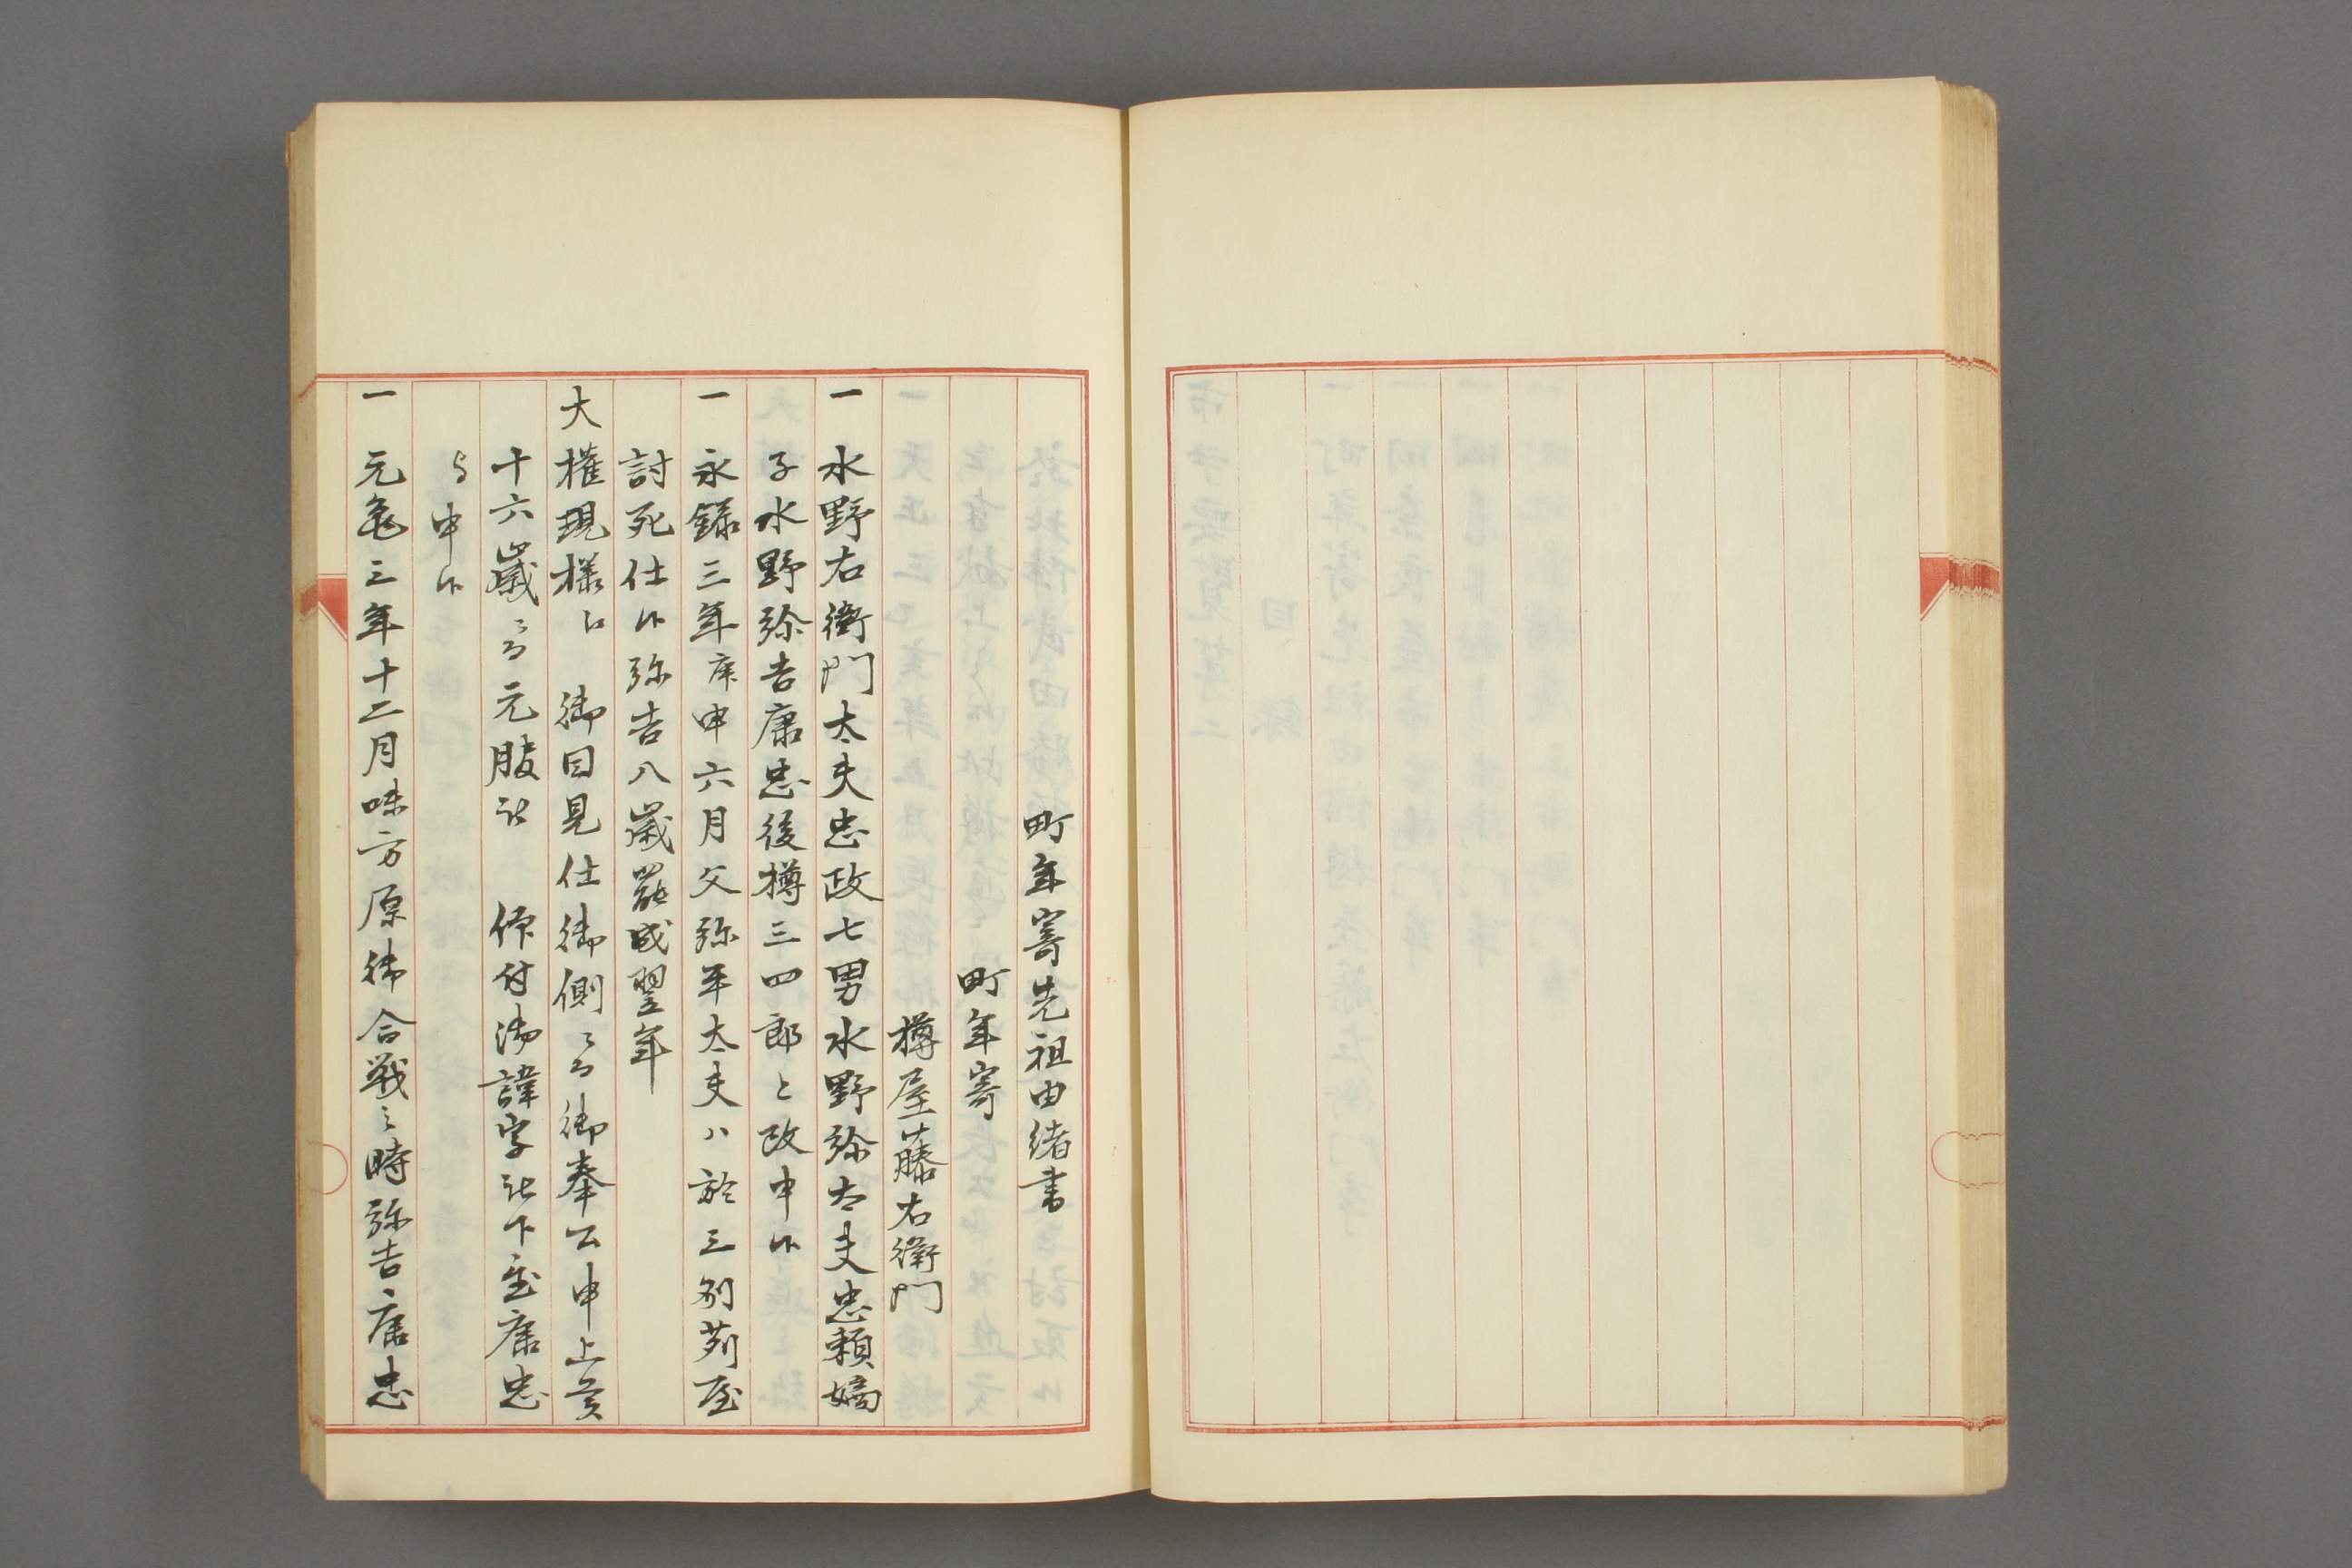 町年寄先祖由緒書
町年寄
樽屋藤右衛門
一水野右衛門太夫忠政七男水野弥太夫忠頼嫡
子水野弥吉康忠後樽三四郎と改申候
一永録三年庚申六月父弥平太夫ハ於三刕苅屋
討死仕候弥吉八歳罷成翌年
大権現様江 御目見仕御側ニ而御奉公申上候
十六歳ニ而元服被 仰付御諱字被下置康忠
与申候
一元亀三年十二月味方原御合戦之時弥吉康忠